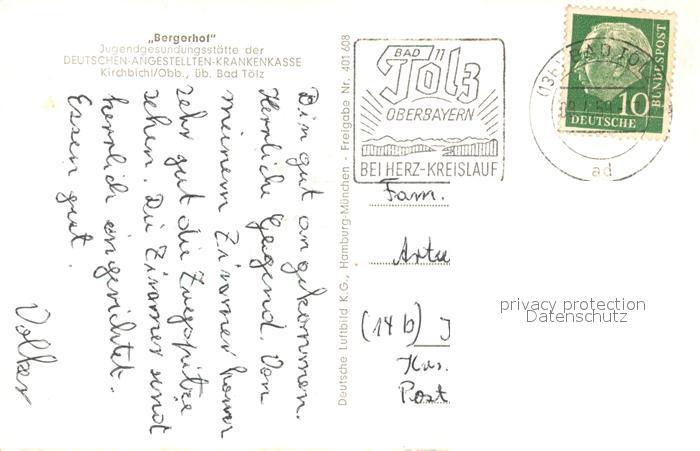 „Bergerhof"
Jugendgesundungsstätte der
DEUTSCHEN-ANGESTELLTEN-KRANKENKASSE
Kirchbichl/Obb., üb. Bad Tölz
Bin gut angekommen.
Herrliche Gegend. Von
meinem Zimmer kann
sehr gut die Zugspitze
sehen. Die Zimmer sind
herrlich eingerichtet.
Essen gut.
Volker
Deutsche Luftbild K.G., Hamburg-München - Freigabe Nr. 401 608
BAD
Tölz
OBERBAYERN
BEI HERZ-KREISLAUF
BAD TÖ
ad
10
DEUTSCHE
BUNDESPOST
Fam.
Artu
(14b) J
Krs.
Post
privacy protection
Datenschutz